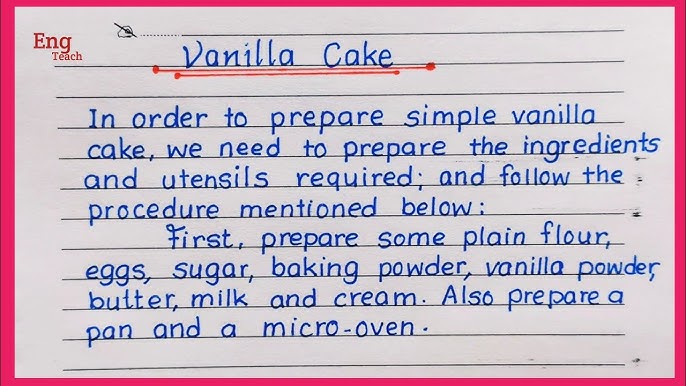 Eng
Teach
Vanilla Cake
In order to prepare simple vanilla
cake, we need to prepare the ingredients
and utensils required; and follow the
procedure mentioned below:
First, prepare some plain flour,
eggs, sugar, baking powder, vanilla powder,
butter, milk and cream. Also prepare a
pan and a micro-oven.